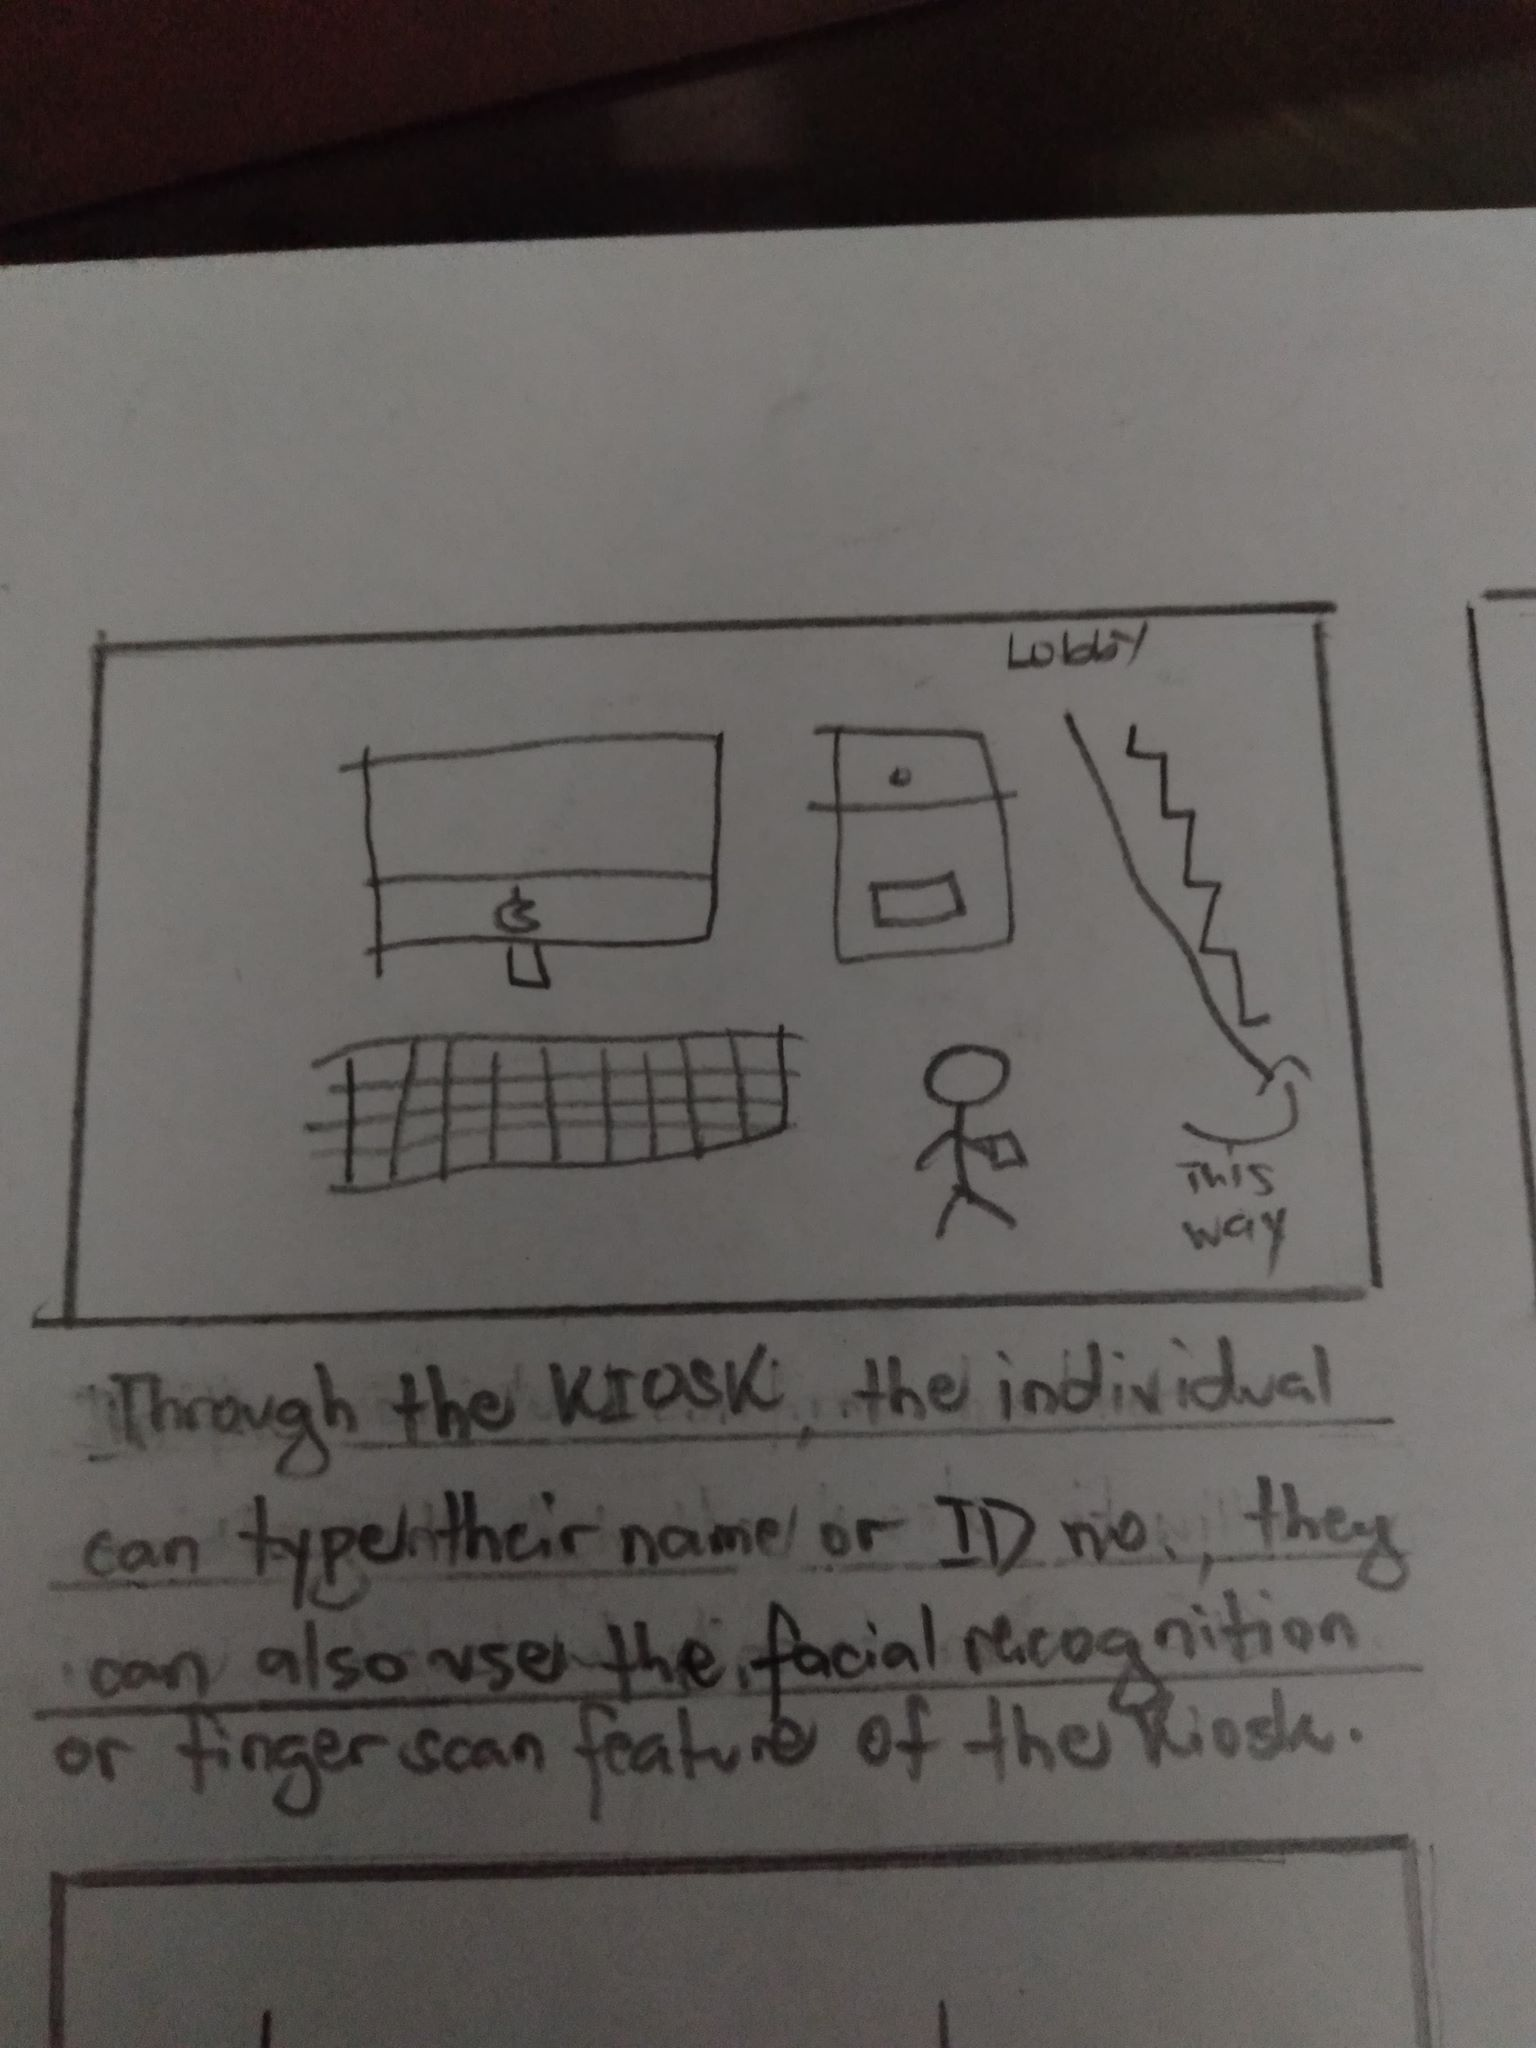 Lobby
This
way
Through the KIOSK, the individual
can type their name or ID no., they
can also use the facial recognition
or finger scan feature of the Kiosk.